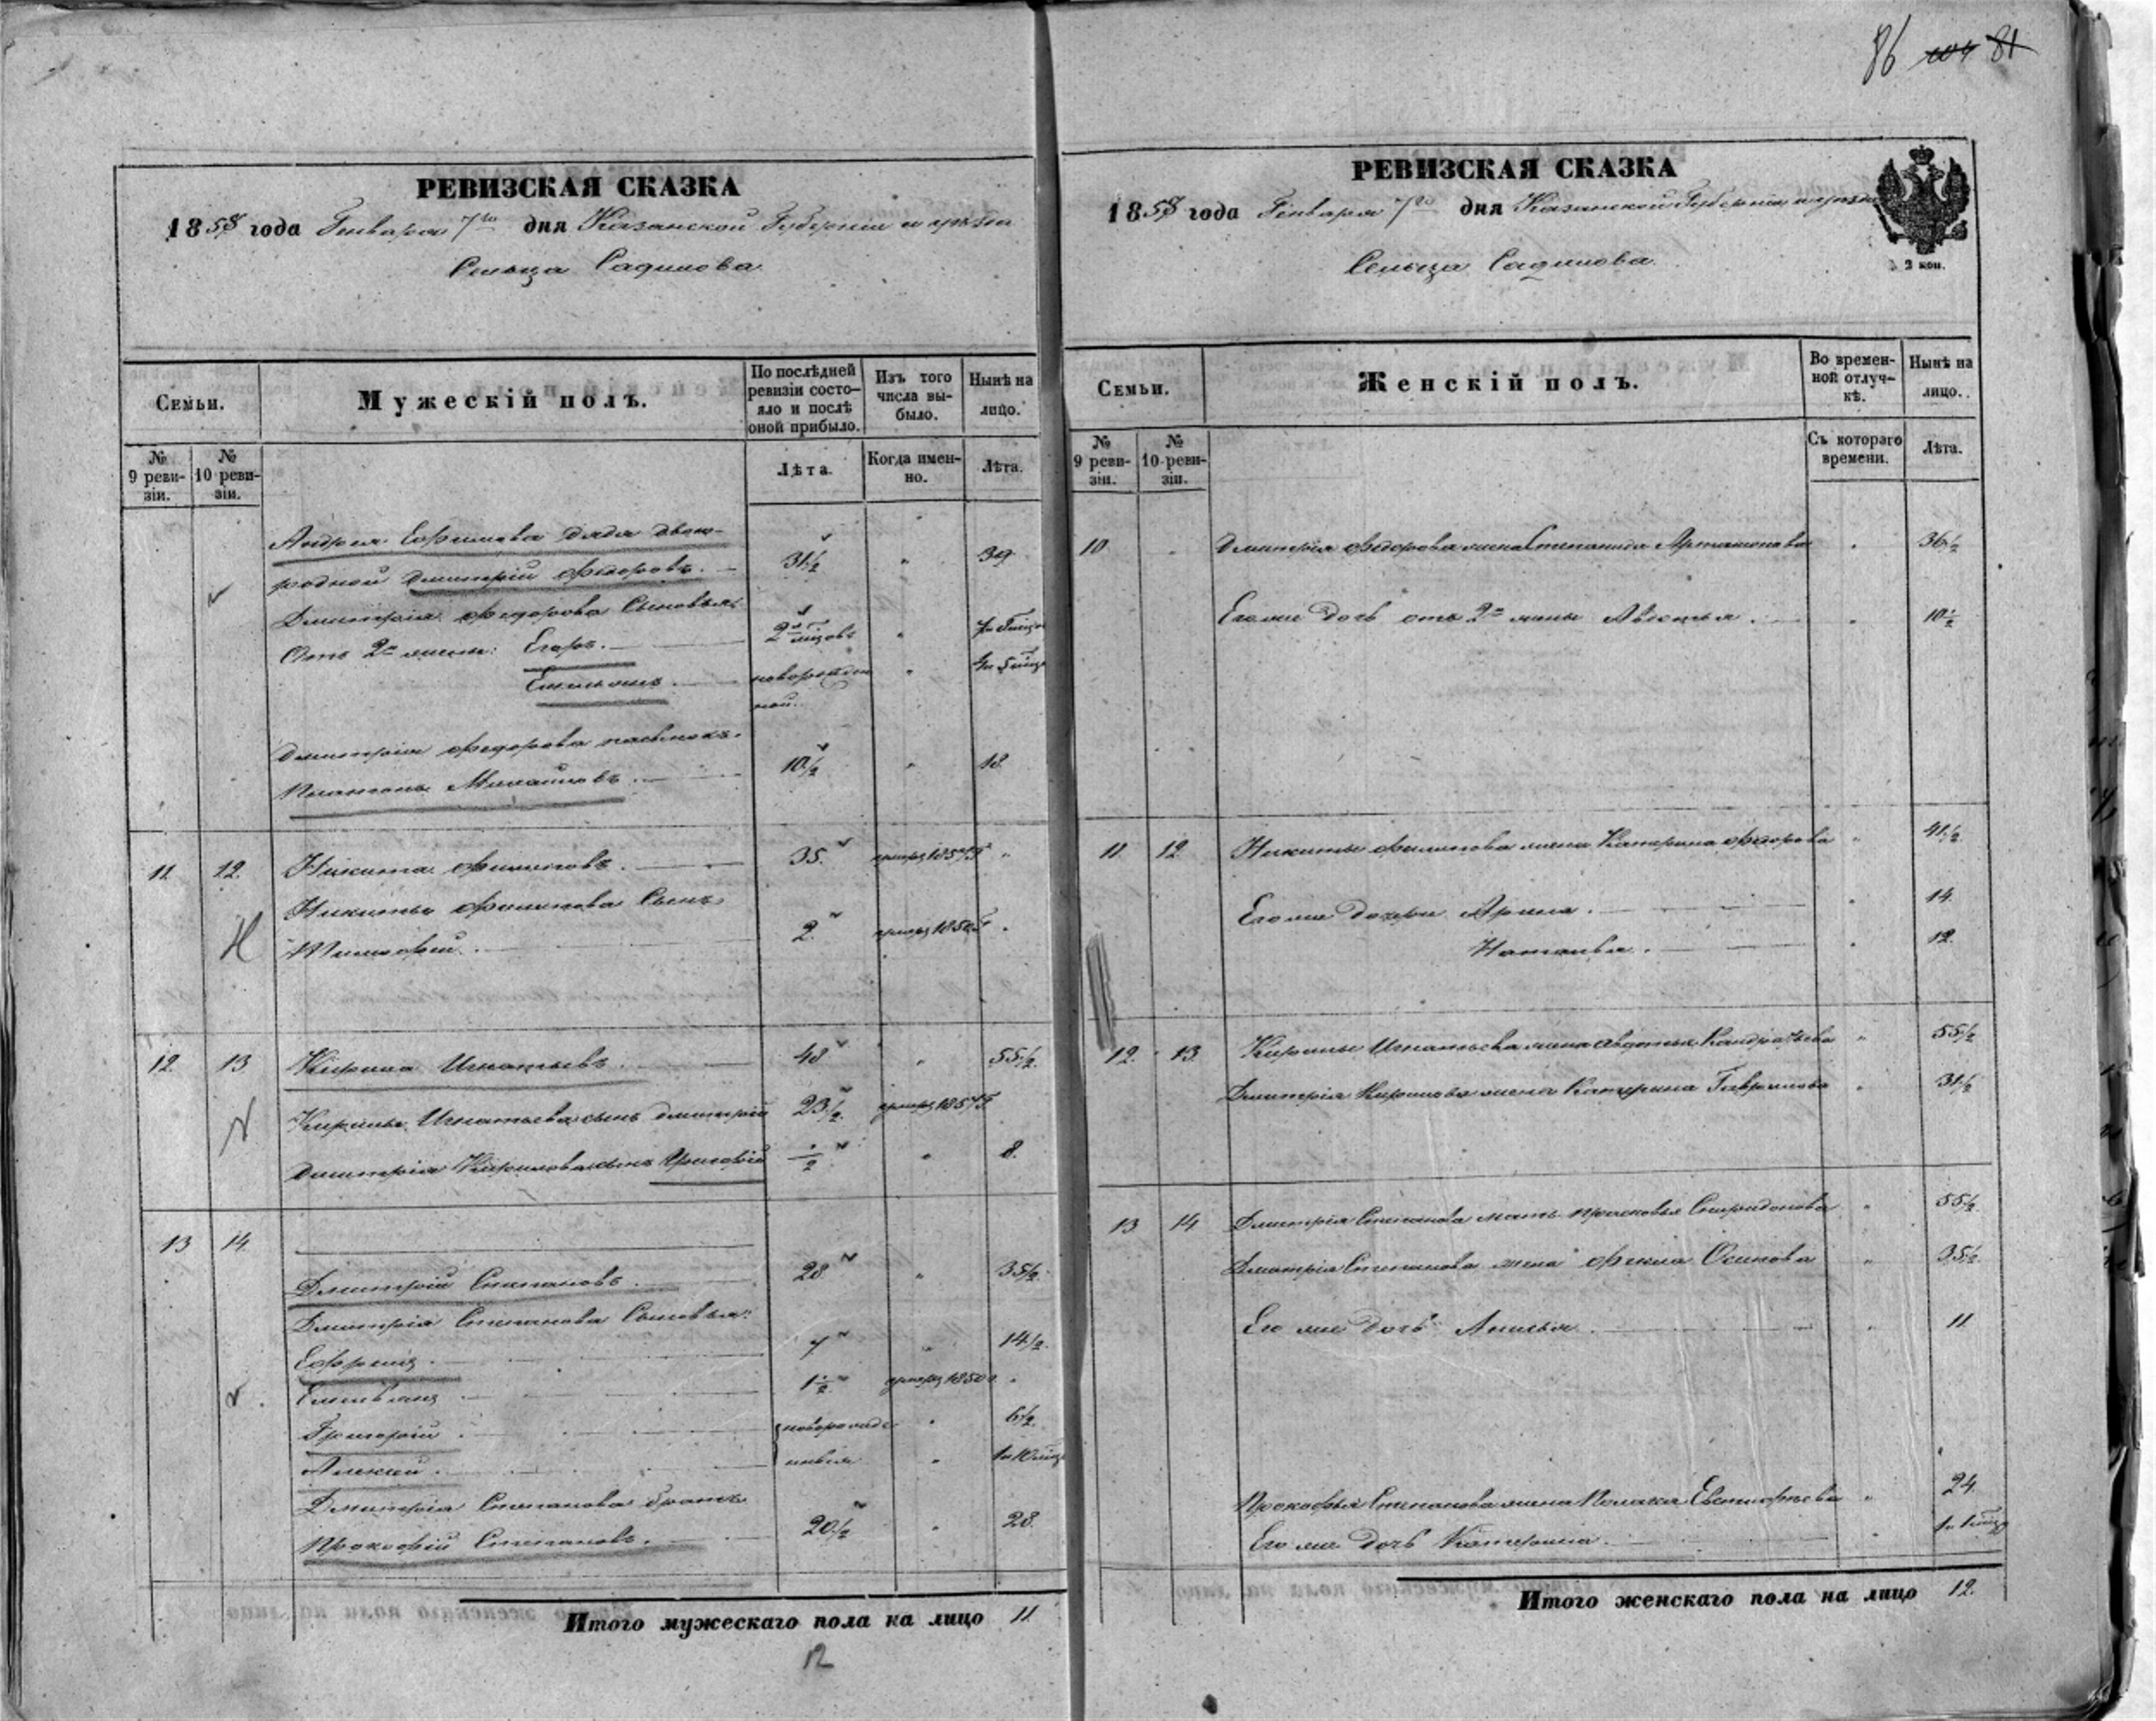 86 104 81
РЕВИЗСКАЯ СКАЗКА
1858 года Генваря 7го дня Казанской Губернiи и уѣзда
Сельца Садилова
Семьи.
Мужескiй полъ.
По послѣдней ревизiи состояло и послѣ оной прибыло.
Изъ того числа выбыло.
Нынѣ на лицо.
№ 9 ревизiи.
№ 10 ревизiи.
Лѣта.
Когда именно.
Лѣта.
Андрея Ефимова дядя двою-
родной Дмитрiй Федоровъ. 31½ " 39
Дмитрiя Федорова Сыновья:
Отъ 2й жены: Егоръ. 2
Емельянъ. новорожден
ной.
Дмитрiя Федорова пасынокъ
Платонъ Михайловъ. 10½ " 18
11 12. Никита Филиповъ. 35.
Никиты Филипова Сынъ
Тимофей. 2.
12 13 Кирила Игнатьевъ. 48 " 55½.
Кирилы Игнатьева сынъ Дмитрiй 23½
Дмитрiя Кирилова сынъ Григорiй ½ " 8.
13 14
Дмитрiй Степановъ. 28 " 35½
Дмитрiя Степанова Сыновья:
Ефремъ. 7 " 14½
Емельянъ 1½
Григорiй новорожде " 6½.
Алексей. нныя " 1 и 10 мѣся
Дмитрiя Степанова братъ
Прокофiй Степановъ. 20½ " 28.
Итого мужескаго пола на лицо 11
12
РЕВИЗСКАЯ СКАЗКА
1858 года Генваря 7го дня Казанской Губернiи и уѣзда
Сельца Садилова
2 коп.
Семьи.
Женскiй полъ.
Во временной отлучкѣ.
Нынѣ на лицо.
№ 9 ревизiи.
№ 10 ревизiи.
Съ котораго времени.
Лѣта.
10 Дмитрiя Федорова жена Степанида Артамонова " 36½
Его же дочь отъ 2й жены Авдотья. " 10½
11. 12 Никиты Филипова жена Катерина Федорова " 41½
Его же дочери Арина. " 14.
Наталья. " 12.
12. 13. Кирилы Игнатьева жена Авдотья Кандратьева " 55½
Дмитрiя Кирилова жена Катерина Гаврилова " 31½
13 14 Дмитрiя Степанова мать Прасковья Спиридонова " 55½
Дмитрiя Степанова жена Фекла Осипова " 35½
Его же дочь Анисья. " 11
Прокофья Степанова жена Евстифеева " 24.
Его же дочь Катерина.
Итого женскаго пола на лицо 12.